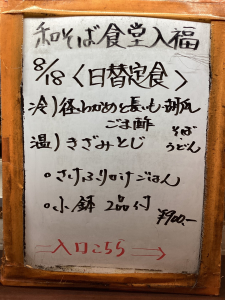 和そば食堂入福
8/18〈日替定食〉
冷)茎わかめと長いも 胡瓜
ごま酢 そば
温)きざみとじ うどん
○さけふりかけごはん
○小鉢 2品付
¥900.-
⇒入口こちら⇒